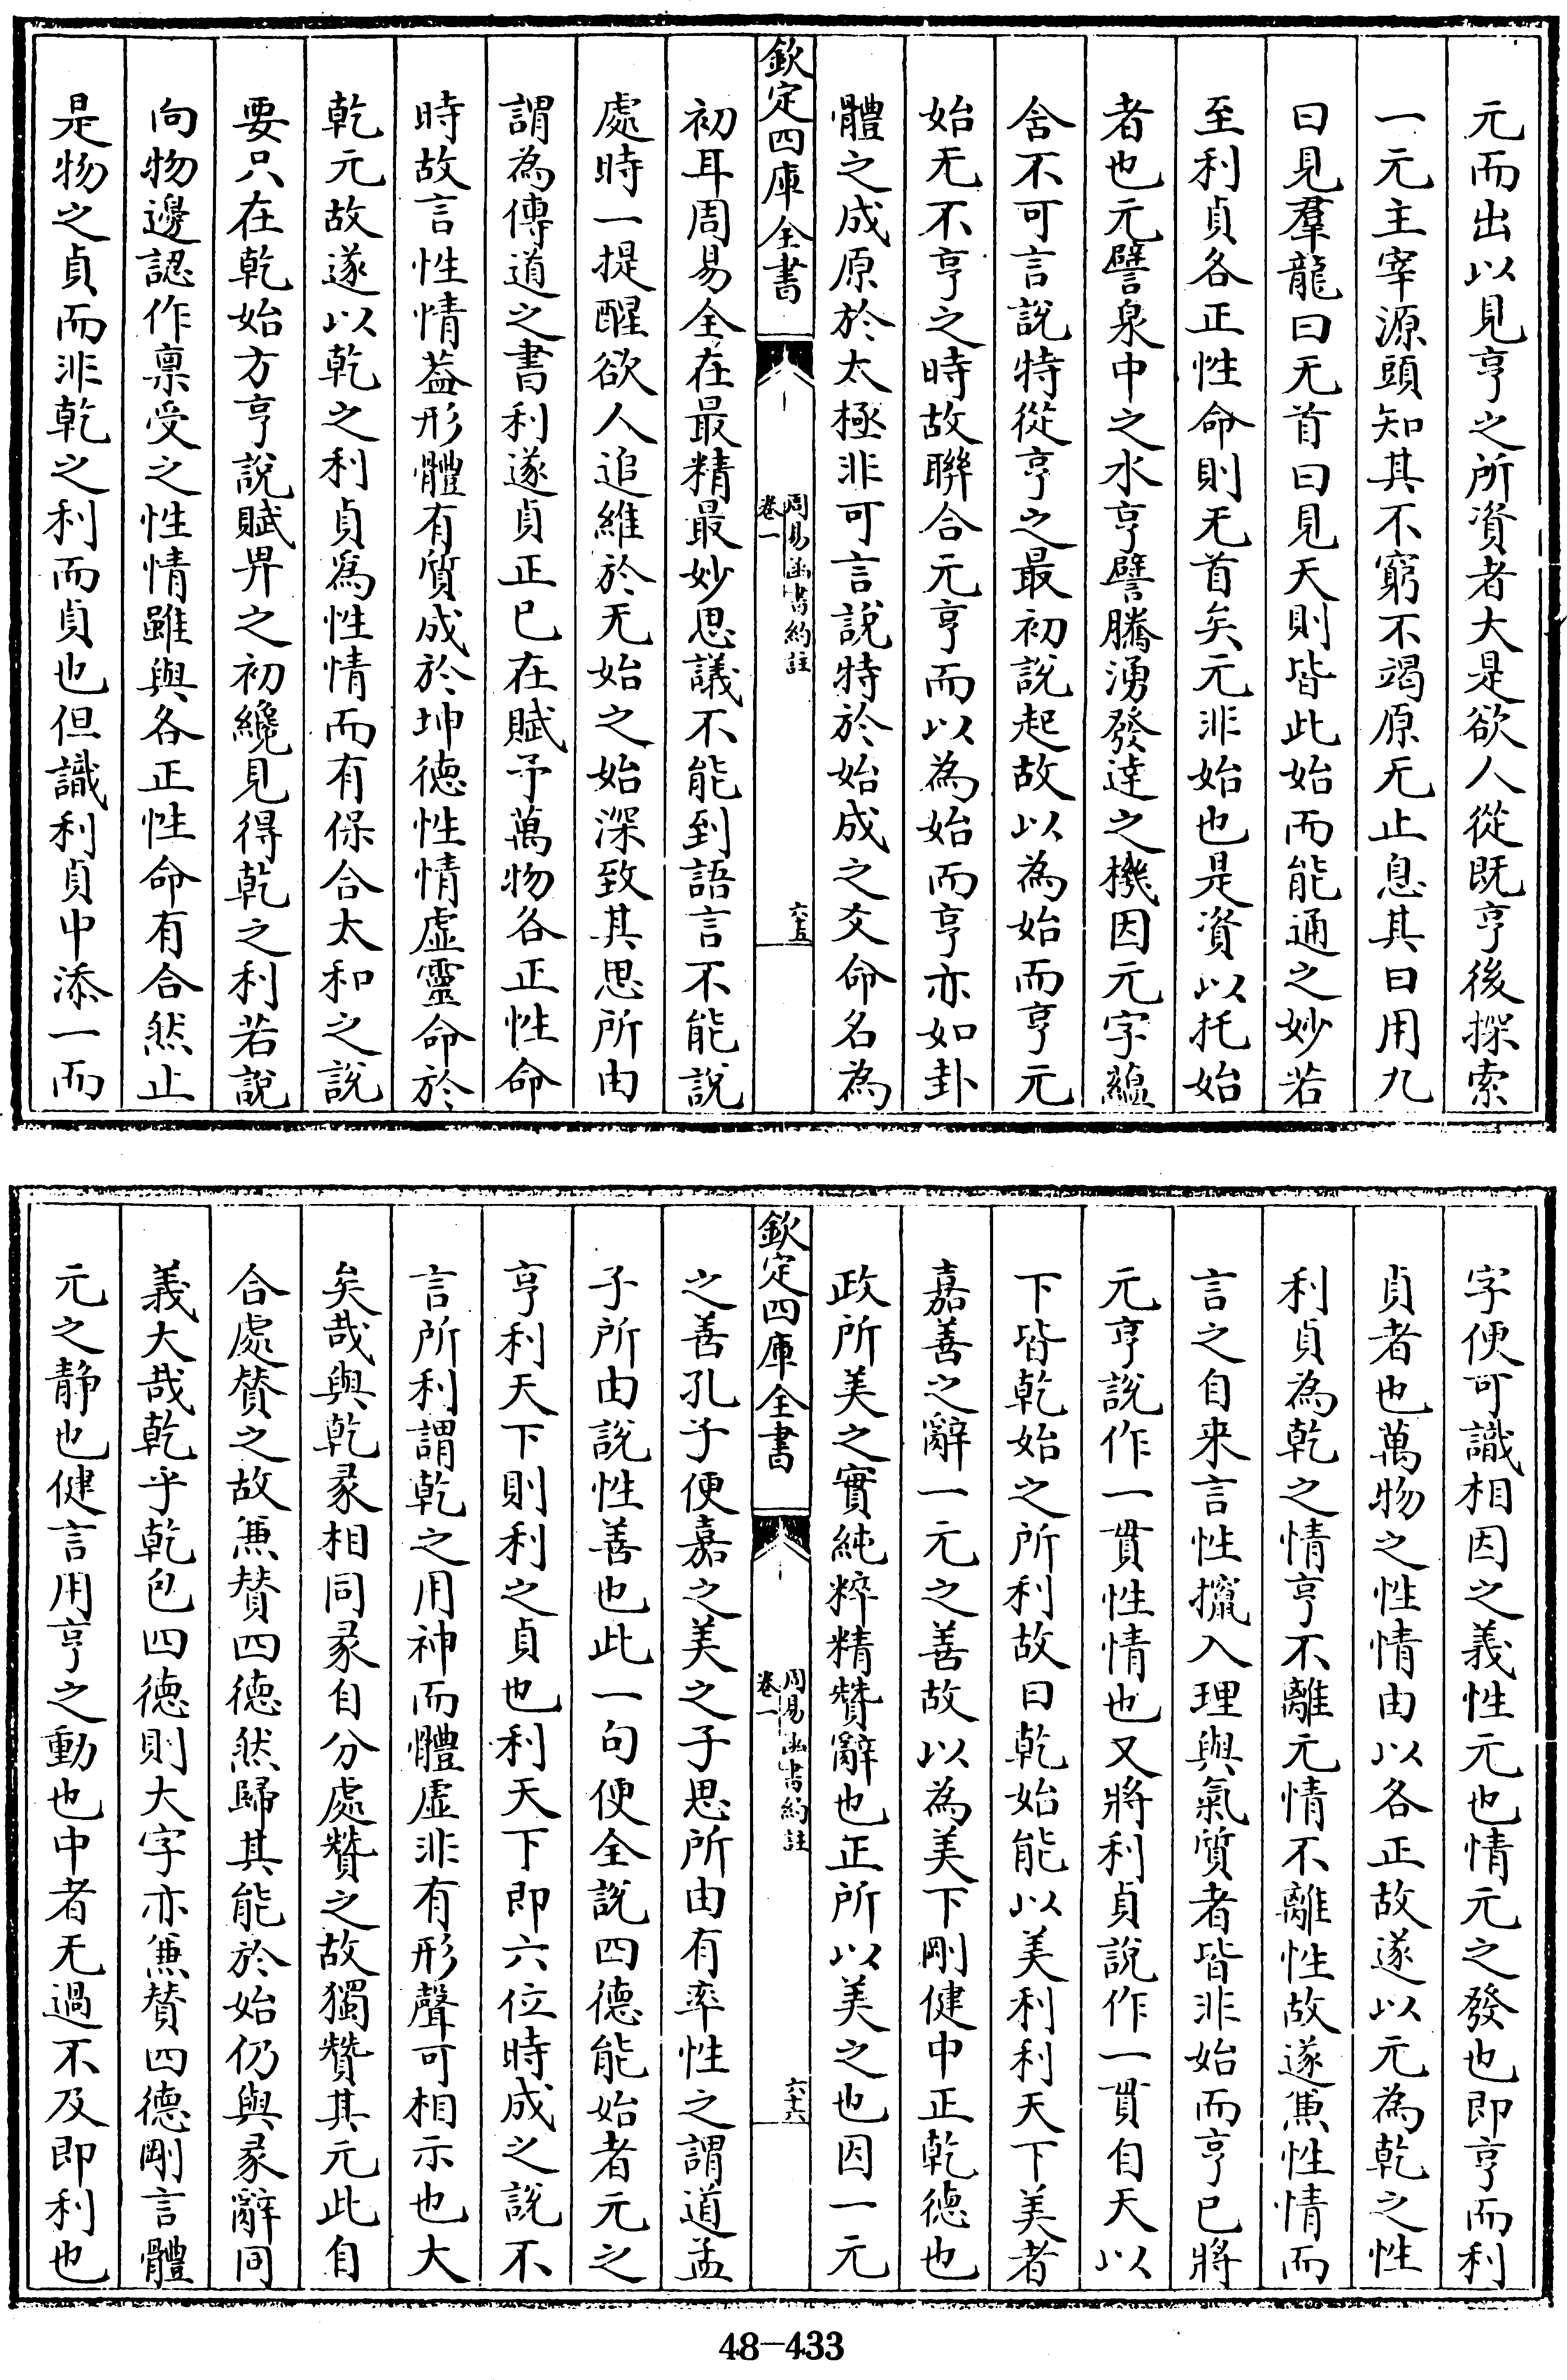 元而出以見亨之所資者大是欲人從既亨後探索
一元主宰源頭知其不窮不竭原无止息其曰用九
曰見羣龍曰无首曰見天則皆此始而能通之妙若
至利貞各正性命則无首矣元非始也是資以托始
者也元譬泉中之水亨譬騰湧發達之機因元字蘊
含不可言說特從亨之最初說起故以為始而亨元
始无不亨之時故聯合元亨而以為始而亨亦如卦
體之成原於太極非可言說特於始成之爻命名為
欽定四庫全書
周易函書約註
卷一
六十五
初耳周易全在最精最妙思議不能到語言不能說
處時一提醒欲人追維於无始之始深致其思所由
謂為傳道之書利遂貞正已在賦予萬物各正性命
時故言性情葢形體有質成於坤德性情虛靈命於
乾元故遂以乾之利貞為性情而有保合太和之說
要只在乾始方亨說賦畀之初纔見得乾之利若說
向物邊認作稟受之性情雖與各正性命有合然止
是物之貞而非乾之利而貞也但識利貞中添一而
字便可識相因之義性元也情元之發也即亨而利
貞者也萬物之性情由以各正故遂以元為乾之性
利貞為乾之情亨不離元情不離性故遂兼性情而
言之自来言性攛入理與氣質者皆非始而亨已將
元亨說作一貫性情也又將利貞說作一貫自天以
下皆乾始之所利故曰乾始能以美利利天下美者
嘉善之辭一元之善故以為美下剛健中正乾德也
政所美之實純粹精賛辭也正所以美之也因一元
欽定四庫全書
周易函書約註
卷一
六十六
之善孔子便嘉之美之子思所由有率性之謂道孟
子所由說性善也此一句便全說四德能始者元之
亨利天下則利之貞也利天下即六位時成之說不
言所利謂乾之用神而體虛非有形聲可相示也大
矣哉與乾彖相同彖自分處贊之故獨贊其元此自
合處賛之故兼賛四德然歸其能於始仍與彖辭同
義大哉乾乎乾包四德則大字亦兼賛四德剛言體
元之静也健言用亨之動也中者无過不及即利也
48-433